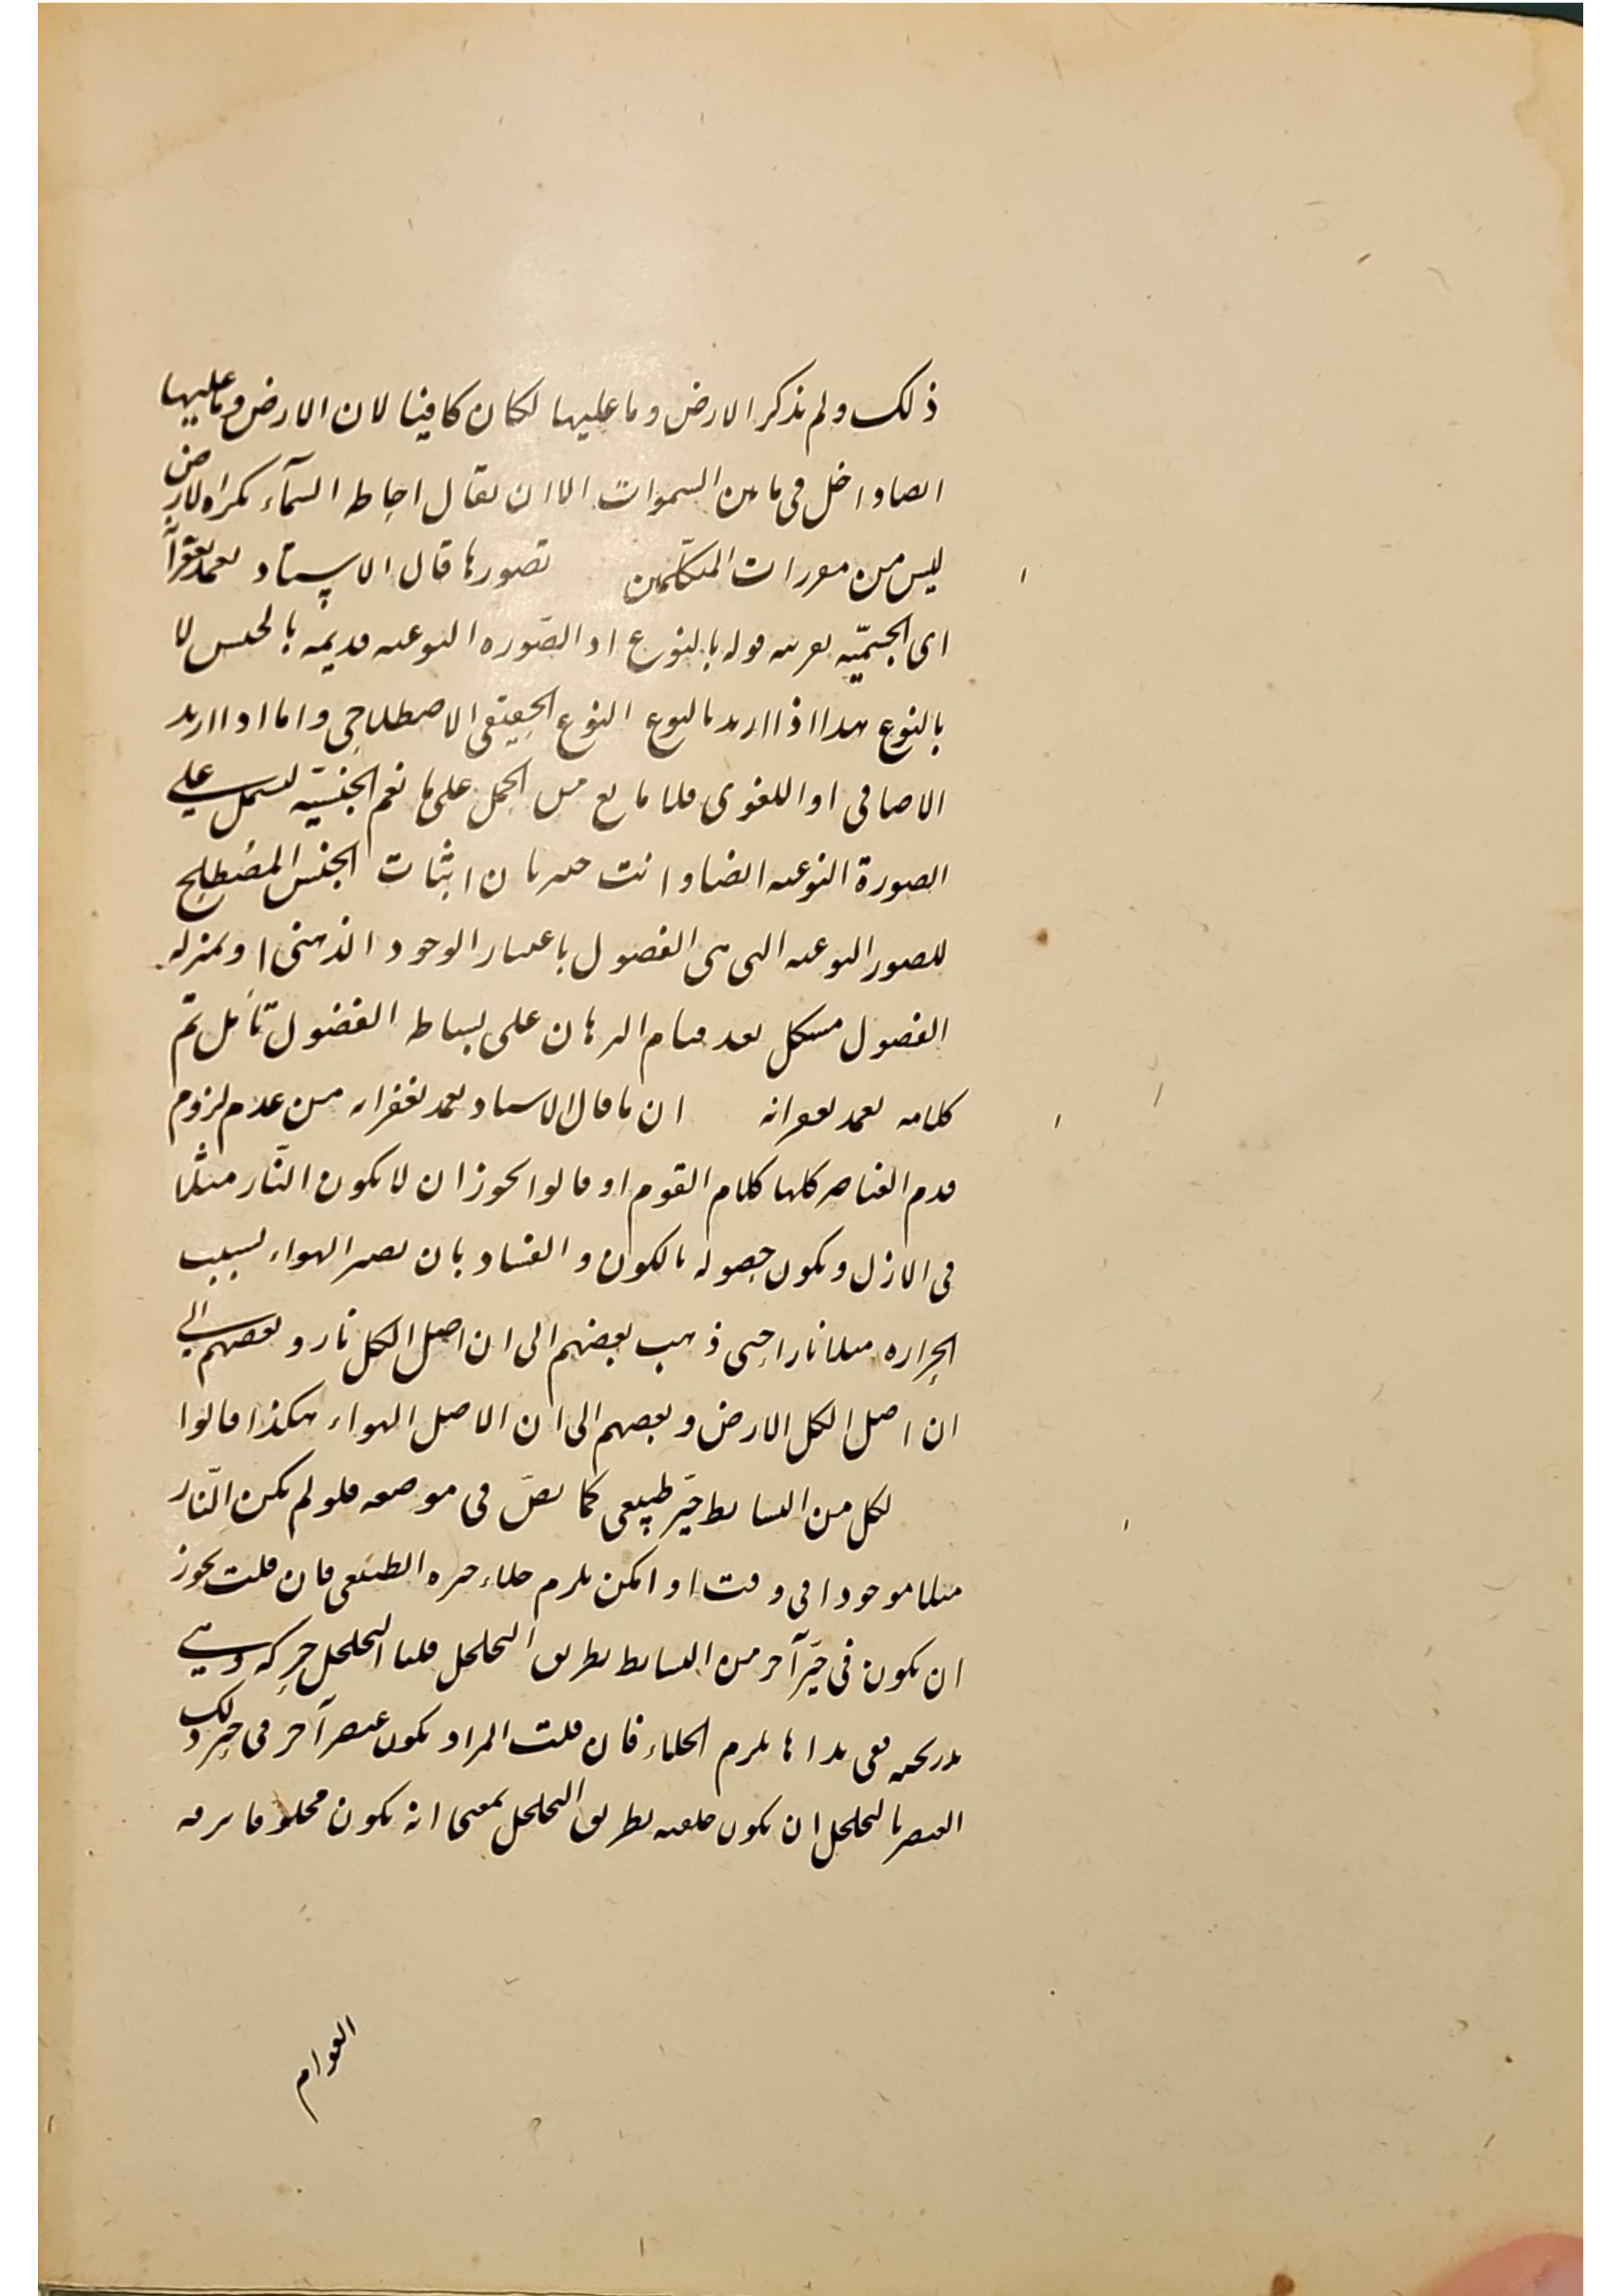 ذلك ولم نذكر الارض وما عليها لكان كافيا لان الارض وما عليها
ايضا داخل في ما بين السموات الا ان يقال احاطة السمآء بكراة الارض
ليس من مقررات المتكلّمين تصورها قال الاستاد تغمد بغفرانه
اى الجسميّة بقرينة قوله بالنوع اذ الصّورة النوعية قديمة بالجنس لا
بالنوع هذا اذا اريد بالنوع النوع الحقيقي الاصطلاحي واما اذا اريد
الاضافي او اللغوى فلا مانع من الحمل على ما نعم الجنسيّة ليشمل على
الصورة النوعية ايضا وانت خبير بان اثبات الجنس المصطلح
للصور النوعية التي هي الفصول باعتبار الوجود الذهنى او بمنزلة
الفصول مشكل بعد قيام البرهان على بساطة الفصول تأمل تم
كلامه تغمد بغفرانه ان ما قال الاستاد تغمد بغفرانه من عدم لزوم
قدم العناصر كلها كلام القوم اذ قالوا يجوز ان لا يكون النّار مثلا
في الازل ويكون حصوله بالكون والفساد بان يصير الهواء بسبب
الحرارة مثلا نارا حتى ذهب بعضهم الى ان اصل الكل نار وبعضهم الى
ان اصل الكل الارض وبعضهم الى ان الاصل الهواء هكذا قالوا
لكل من البسايط حيّز طبيعى كما بيّن في موضعه فلو لم يكن النّار
مثلا موجودا في وقت اذ امكن يلزم خلاء حيزه الطبيعى فان قلت يجوز
ان يكون في حيّز آخر من البسايط بطريق التخلخل قلنا التخلخل حركة وهي
تدريجية ففي بداها يلزم الخلاء فان قلت المراد بكون عنصر آخر في حيز ذلك
العنصر بالتخلخل ان يكون خلقته بطريق التخلخل بمعنى انه يكون مخلوقا
العوام